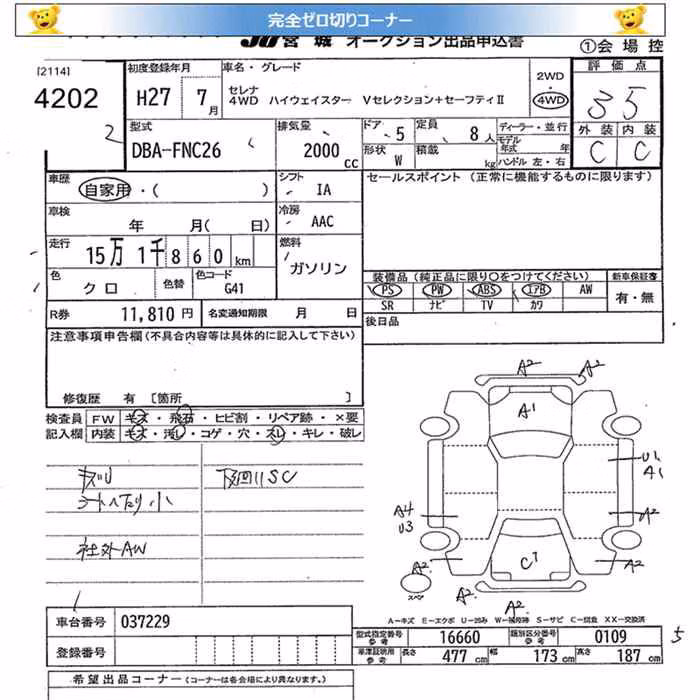 完全ゼロ切りコーナー
JU 宮城 オークション出品申込書
①会場控
[2114]
4202
2
初度登録年月
H27 7月
車名・グレード
セレナ
4WD ハイウェイスター Vセレクション+セーフティⅡ
2WD
4WD
評価点
3 5
外装 内装
C C
型式
DBA-FNC26
排気量
2000 cc
ドア 5
形状 W
定員 8人
積載 kg
ディーラー・並行
モデル年式 年
ハンドル 左・右
車歴
自家用・( )
シフト
IA
セールスポイント (正常に機能するものに限ります)
車検
年 月( 日)
冷房
AAC
走行
15万 1千 860 km
燃料
ガソリン
色
クロ
色替
色コード
G41
装備品 (純正品に限り○をつけてください)
新車保証書
PS PW ABS エアB AW
SR ナビ TV カワ
有・無
R券
11,810円
名変通知期限 月 日
後日品
注意事項申告欄 (不具合内容等は具体的に記入して下さい)
修復歴 有 [箇所 ]
検査員
記入欄
FW キズ・飛石・ヒビ割・リペア跡・×要
内装 キズ・汚レ・コゲ・穴・スレ・キレ・破レ
シートヘタリ小
社外AW
下回りSC
A2
A2
A1
U1
A1
A4
U3
A2
A2
C1
A2
A2
A2
スペア
A-キズ E-エクボ U-凹み W-補修跡 S-サビ C-腐食 XX-交換済
車台番号
037229
登録番号
型式指定番号
参考
16660
類別区分番号
参考
0109
5
車庫証明用
参考
長さ 477cm
幅 173cm
高さ 187cm
希望出品コーナー (コーナーは各会場により異なります。)